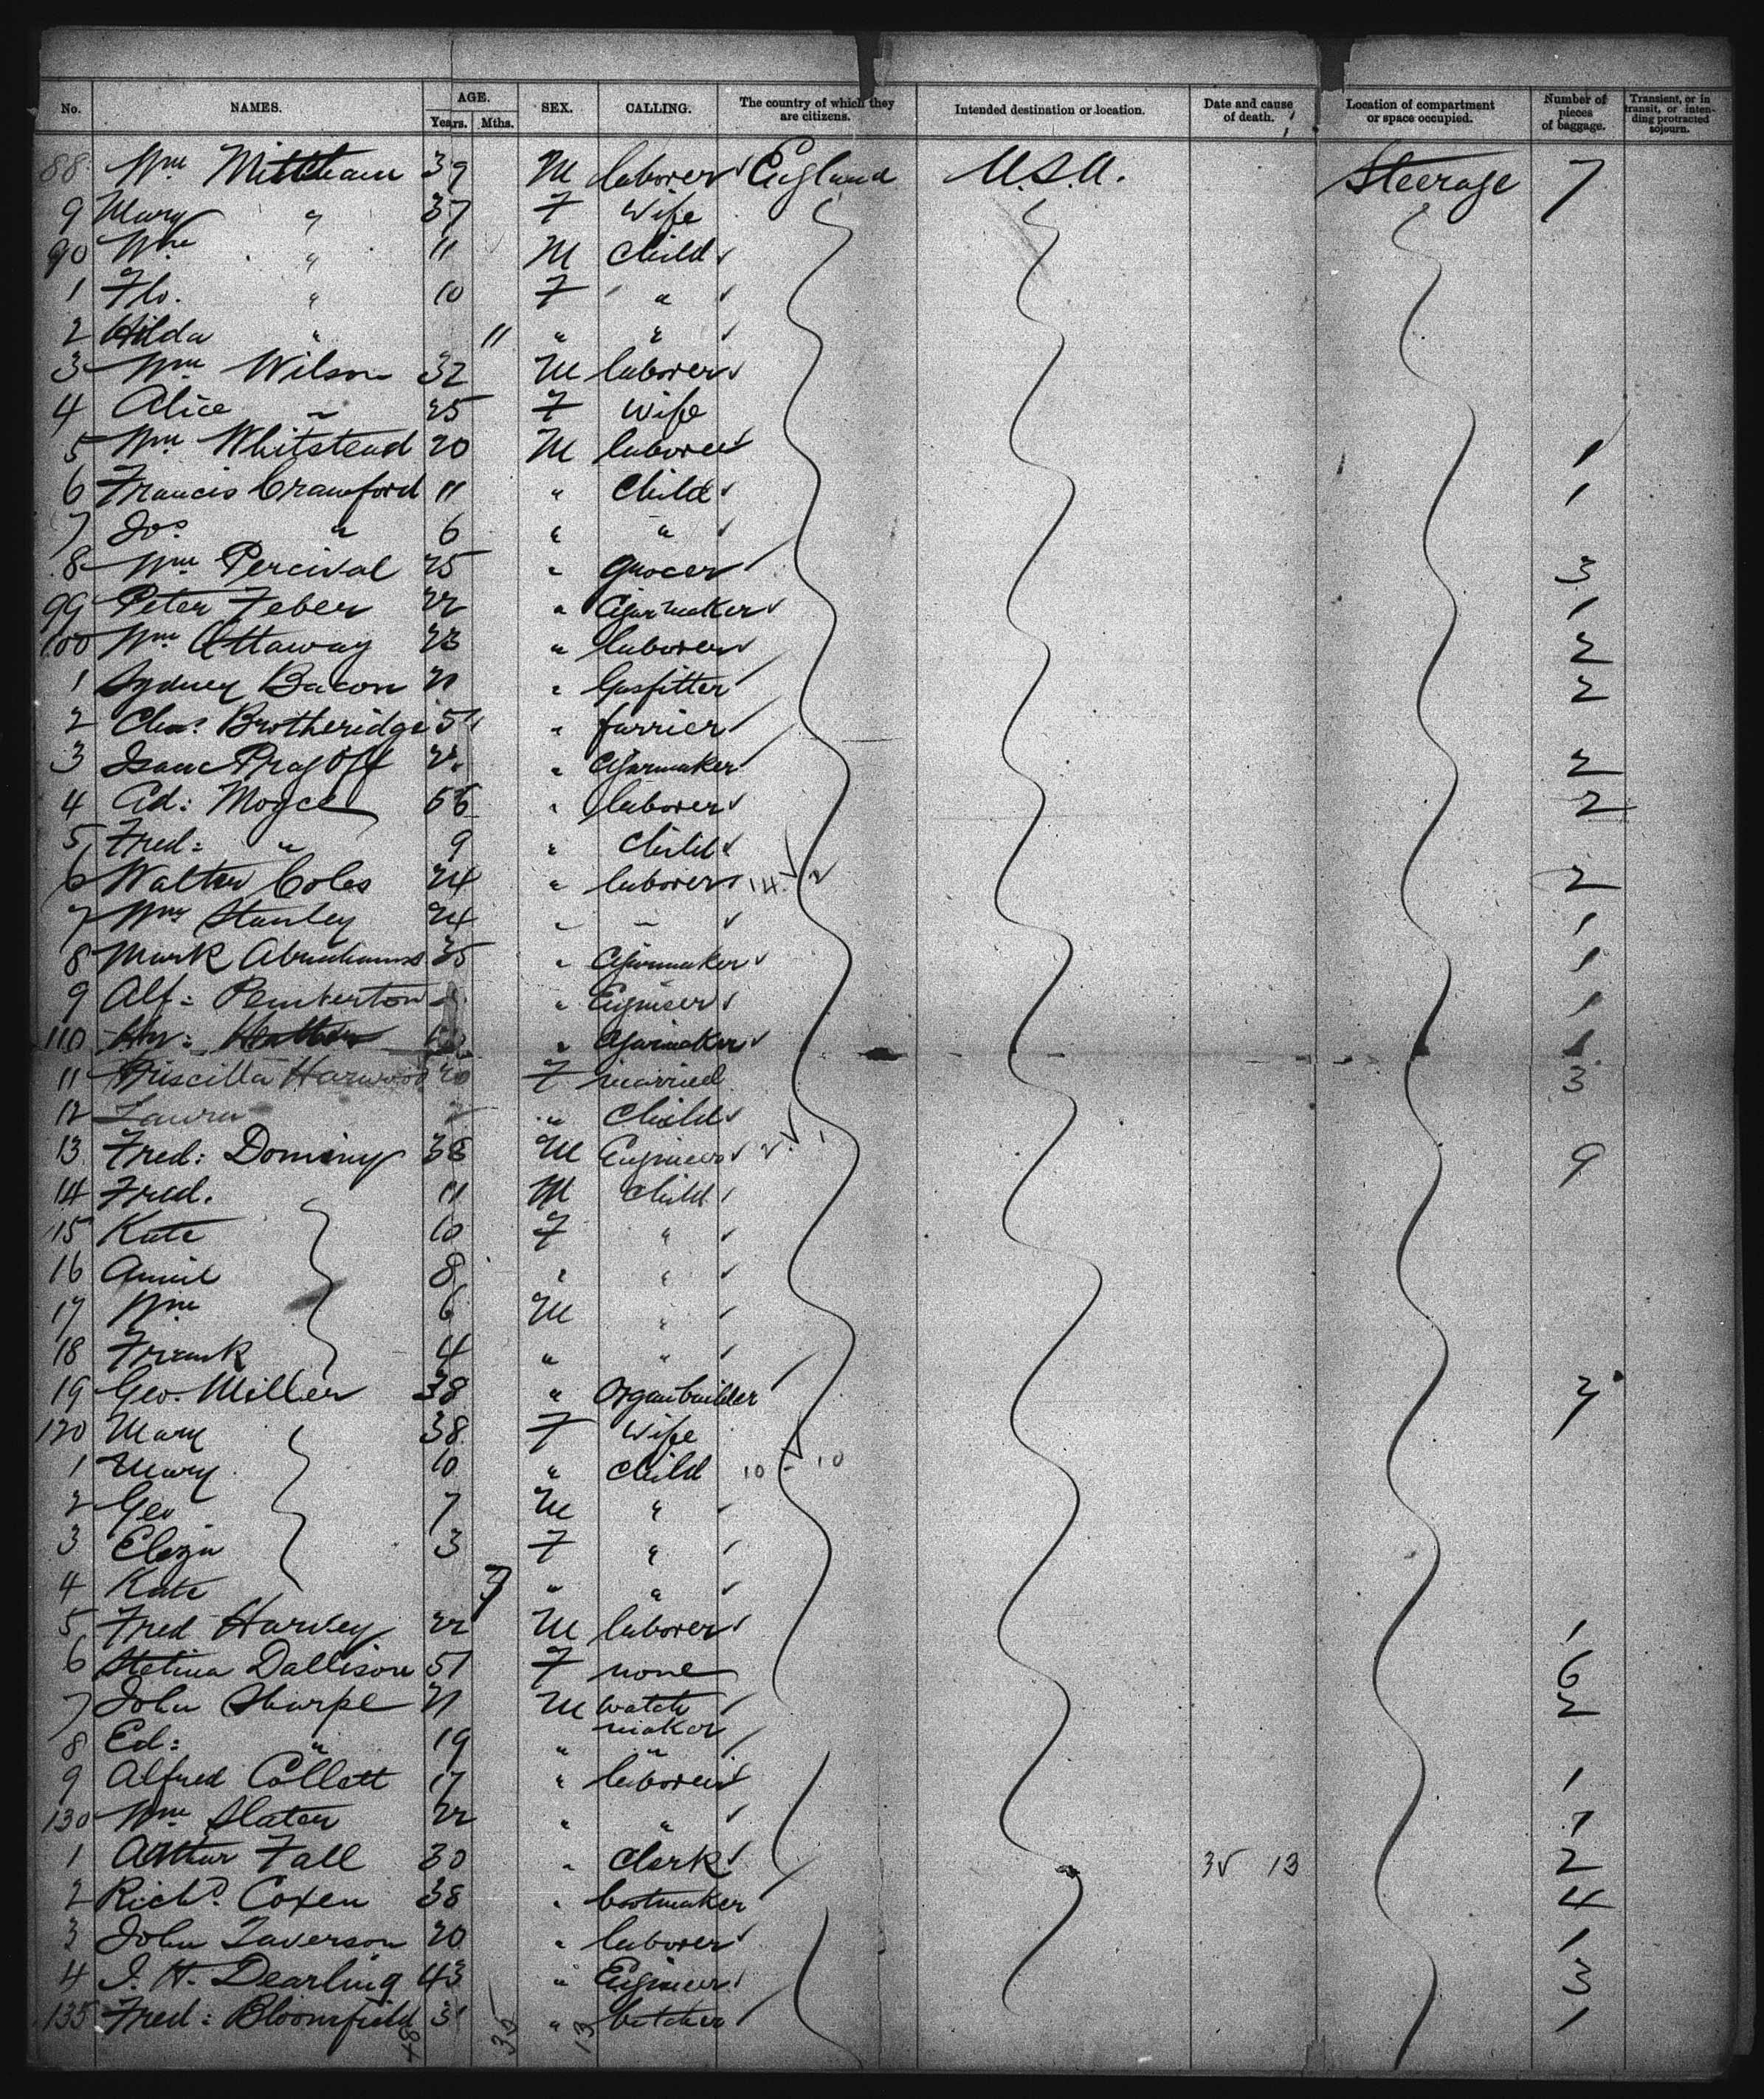 No. NAMES. AGE. Years. Mths. SEX. CALLING. The country of which they are citizens. Intended destination or location. Date and cause of death. Location of compartment or space occupied. Number of pieces of baggage. Transient, or in transit, or intending protracted sojourn.
88 Wm Mittham 39 M laborer England U.S.A. Steerage 7
9 Mary " 37 F Wife
90 Wm " 11 M Child
1 Flo. " 10 F "
2 Hilda " 11 " "
3 Wm Wilson 32 M laborer
4 Alice " 25 F Wife
5 Wm Whitstead 20 M laborer 1
6 Francis Crawford 11 " Child 1
7 Jos " 6 " "
8 Wm Percival 25 " Grocer 3
99 Peter Feber 22 " Cigarmaker 1
100 Wm Ottaway 23 " laborer 2
1 Sydney Bacon 21 " Gasfitter 2
2 Chas. Brotheridge " furrier
3 Isaac Pragoff " Cigarmaker 2
4 Ad: Moyce 56 " laborer 2
5 Fred: " 9 " Child
6 Walter Coles 24 " laborer 14 2 2
7 Wm Stanley 24 " " 1
8 Mark Abrahams 35 " Cigarmaker 1
9 Alf: Pemberton " Engineer 1
110 " Cigarmaker 1
11 Priscilla Harwood 20 F married 3
12 Laura 2 " Child
13 Fred: Dominy 38 M Engineer 2 1 9
14 Fred. 11 M Child
15 Kate 10 F "
16 Annie 8 " "
17 Wm 6 M "
18 Frank 4 " "
19 Geo. Miller 38 " Organbuilder 7
120 Mary 38 F Wife
1 Mary 10 " Child 10 - 10
2 Geo 7 M "
3 Eliza 3 F "
4 Kate 7 " "
5 Fred Harvey 22 M laborer 1
6 Dallison 51 F none 6
7 John Sharpe 21 M watch maker 2
8 Ed: " 19 " "
9 Alfred Collett 17 " laborer 1
130 Wm Slater 22 " " 1
1 Arthur Fall 30 " Clerk 35 13 2
2 Richd. Coxen 38 " bootmaker 4
3 John Taverson 20 " laborer 1
4 J. H. Dearling 43 " Engineer 3
135 Fred: Bloomfield 31 " butcher 1
48 35 13